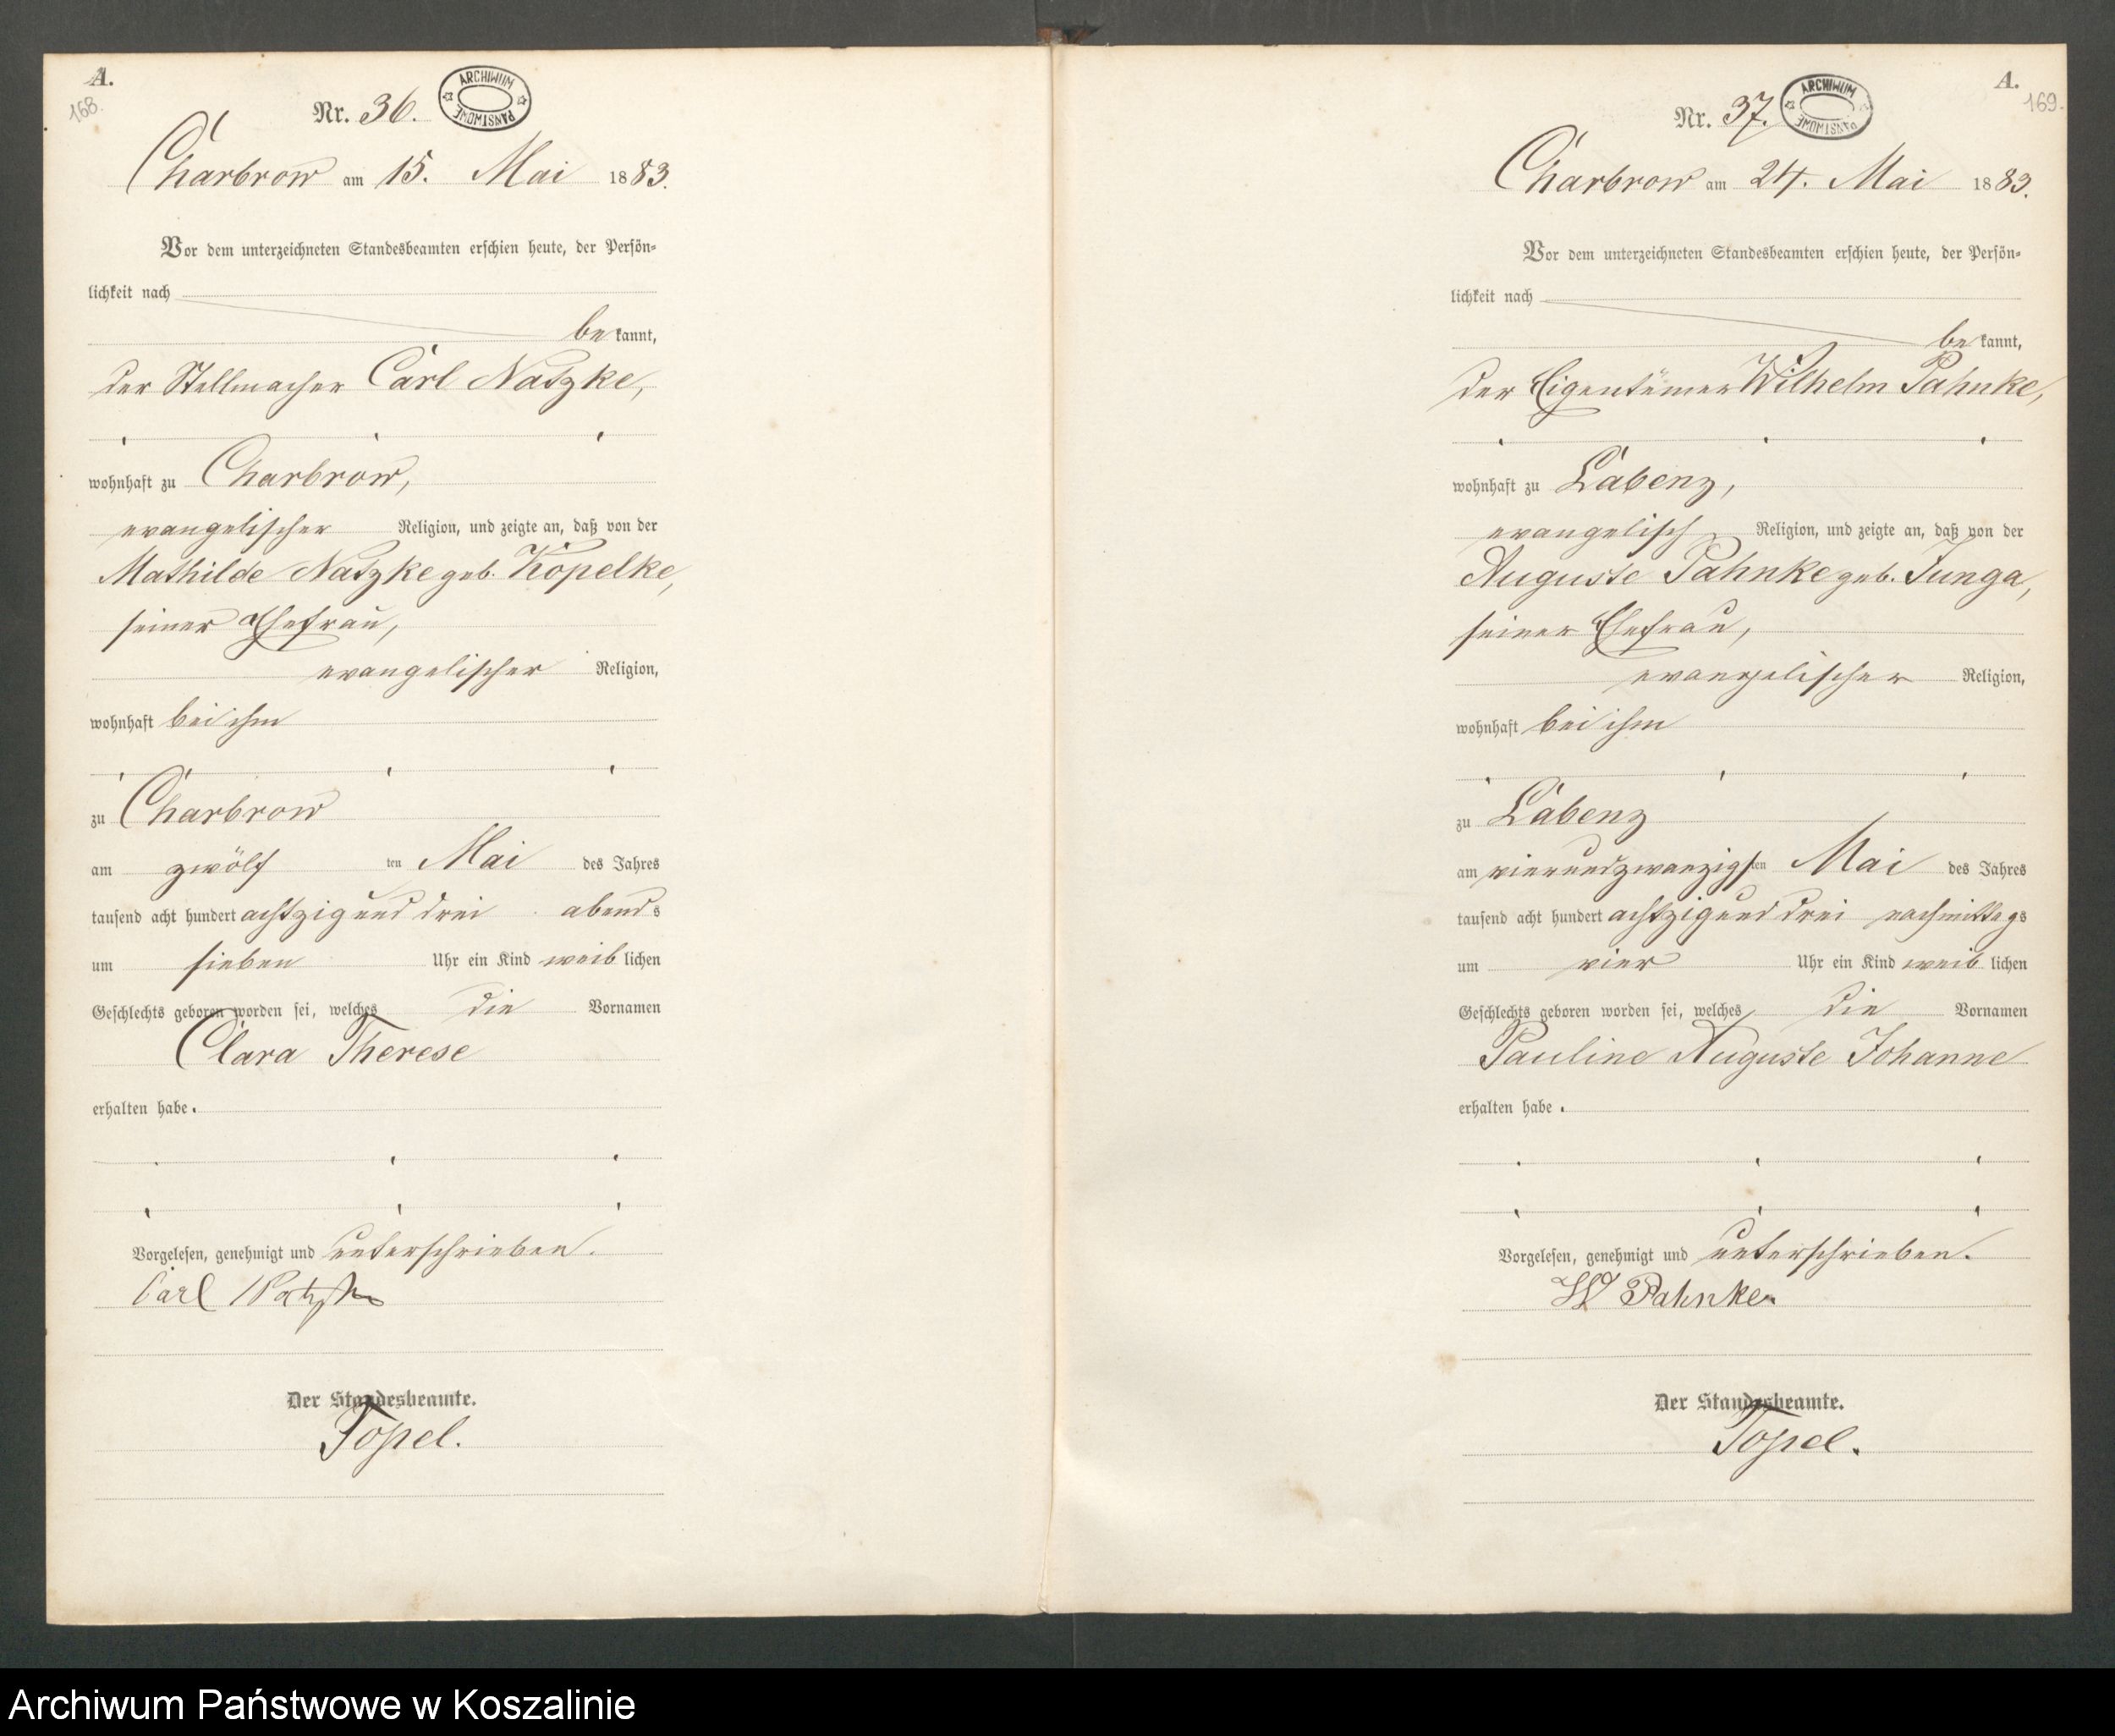 A.
168.
Nr. 36.
ARCHIWUM PAŃSTWOWE
Charbrow am 15. Mai 1883.
Vor dem unterzeichneten Standesbeamten erschien heute, der Persön-
lichkeit nach
be kannt,
der Stellmacher Carl Natzke,
wohnhaft zu Charbrow,
evangelischer Religion, und zeigte an, daß von der
Mathilde Natzke geb. Kopelke,
seiner Ehefrau,
evangelischer Religion,
wohnhaft bei ihm
zu Charbrow
am zwölf ten Mai des Jahres
tausend acht hundert achtzig und drei abends
um sieben Uhr ein Kind weiblichen
Geschlechts geboren worden sei, welches die Vornamen
Clara Therese
erhalten habe.
Vorgelesen, genehmigt und unterschrieben.
Carl Natzke
Der Standesbeamte.
Topel.
A.
169.
Nr. 37.
ARCHIWUM PAŃSTWOWE
Charbrow am 24. Mai 1883.
Vor dem unterzeichneten Standesbeamten erschien heute, der Persön-
lichkeit nach
be kannt,
der Eigentümer Wilhelm Pahnke,
wohnhaft zu Labenz,
evangelisch Religion, und zeigte an, daß von der
Auguste Pahnke geb. Junga,
seiner Ehefrau,
evangelischer Religion,
wohnhaft bei ihm
zu Labenz
am vierundzwanzigsten Mai des Jahres
tausend acht hundert achtzig und drei nachmittags
um vier Uhr ein Kind weiblichen
Geschlechts geboren worden sei, welches die Vornamen
Pauline Auguste Johanne
erhalten habe.
Vorgelesen, genehmigt und unterschrieben.
W Pahnke.
Der Standesbeamte.
Topel.
Archiwum Państwowe w Koszalinie